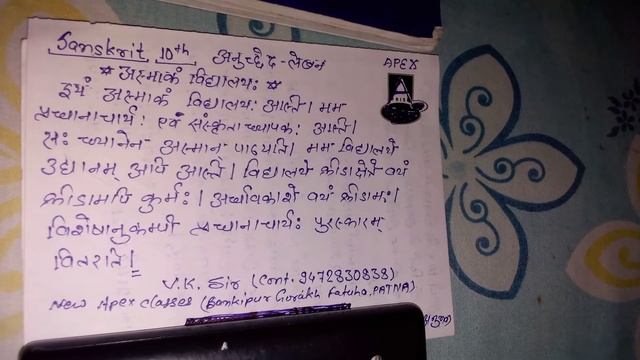 Sanskrit 10th अनुच्छेद-लेखन APEX
* अस्माकं विद्यालयः *
इयं अस्माकं विद्यालयः अस्ति। मम
प्रधानाचार्यः एवं संस्कृताध्यापकः अस्ति।
सः ध्यानेन अस्मान् पाठयति। मम विद्यालये
उद्यानम् अपि अस्ति। विद्यालये क्रीडाक्षेत्रे वयं
क्रीडामपि कुर्मः। अर्धावकाशे वयं क्रीडामः।
विशेषानुकम्पी प्रधानाचार्यः पुरस्कारम्
वितरति॥
V.K. Sir (Cont. 9472830838)
New Apex Classes (Bankipur Gorakh Fatuha, PATNA)